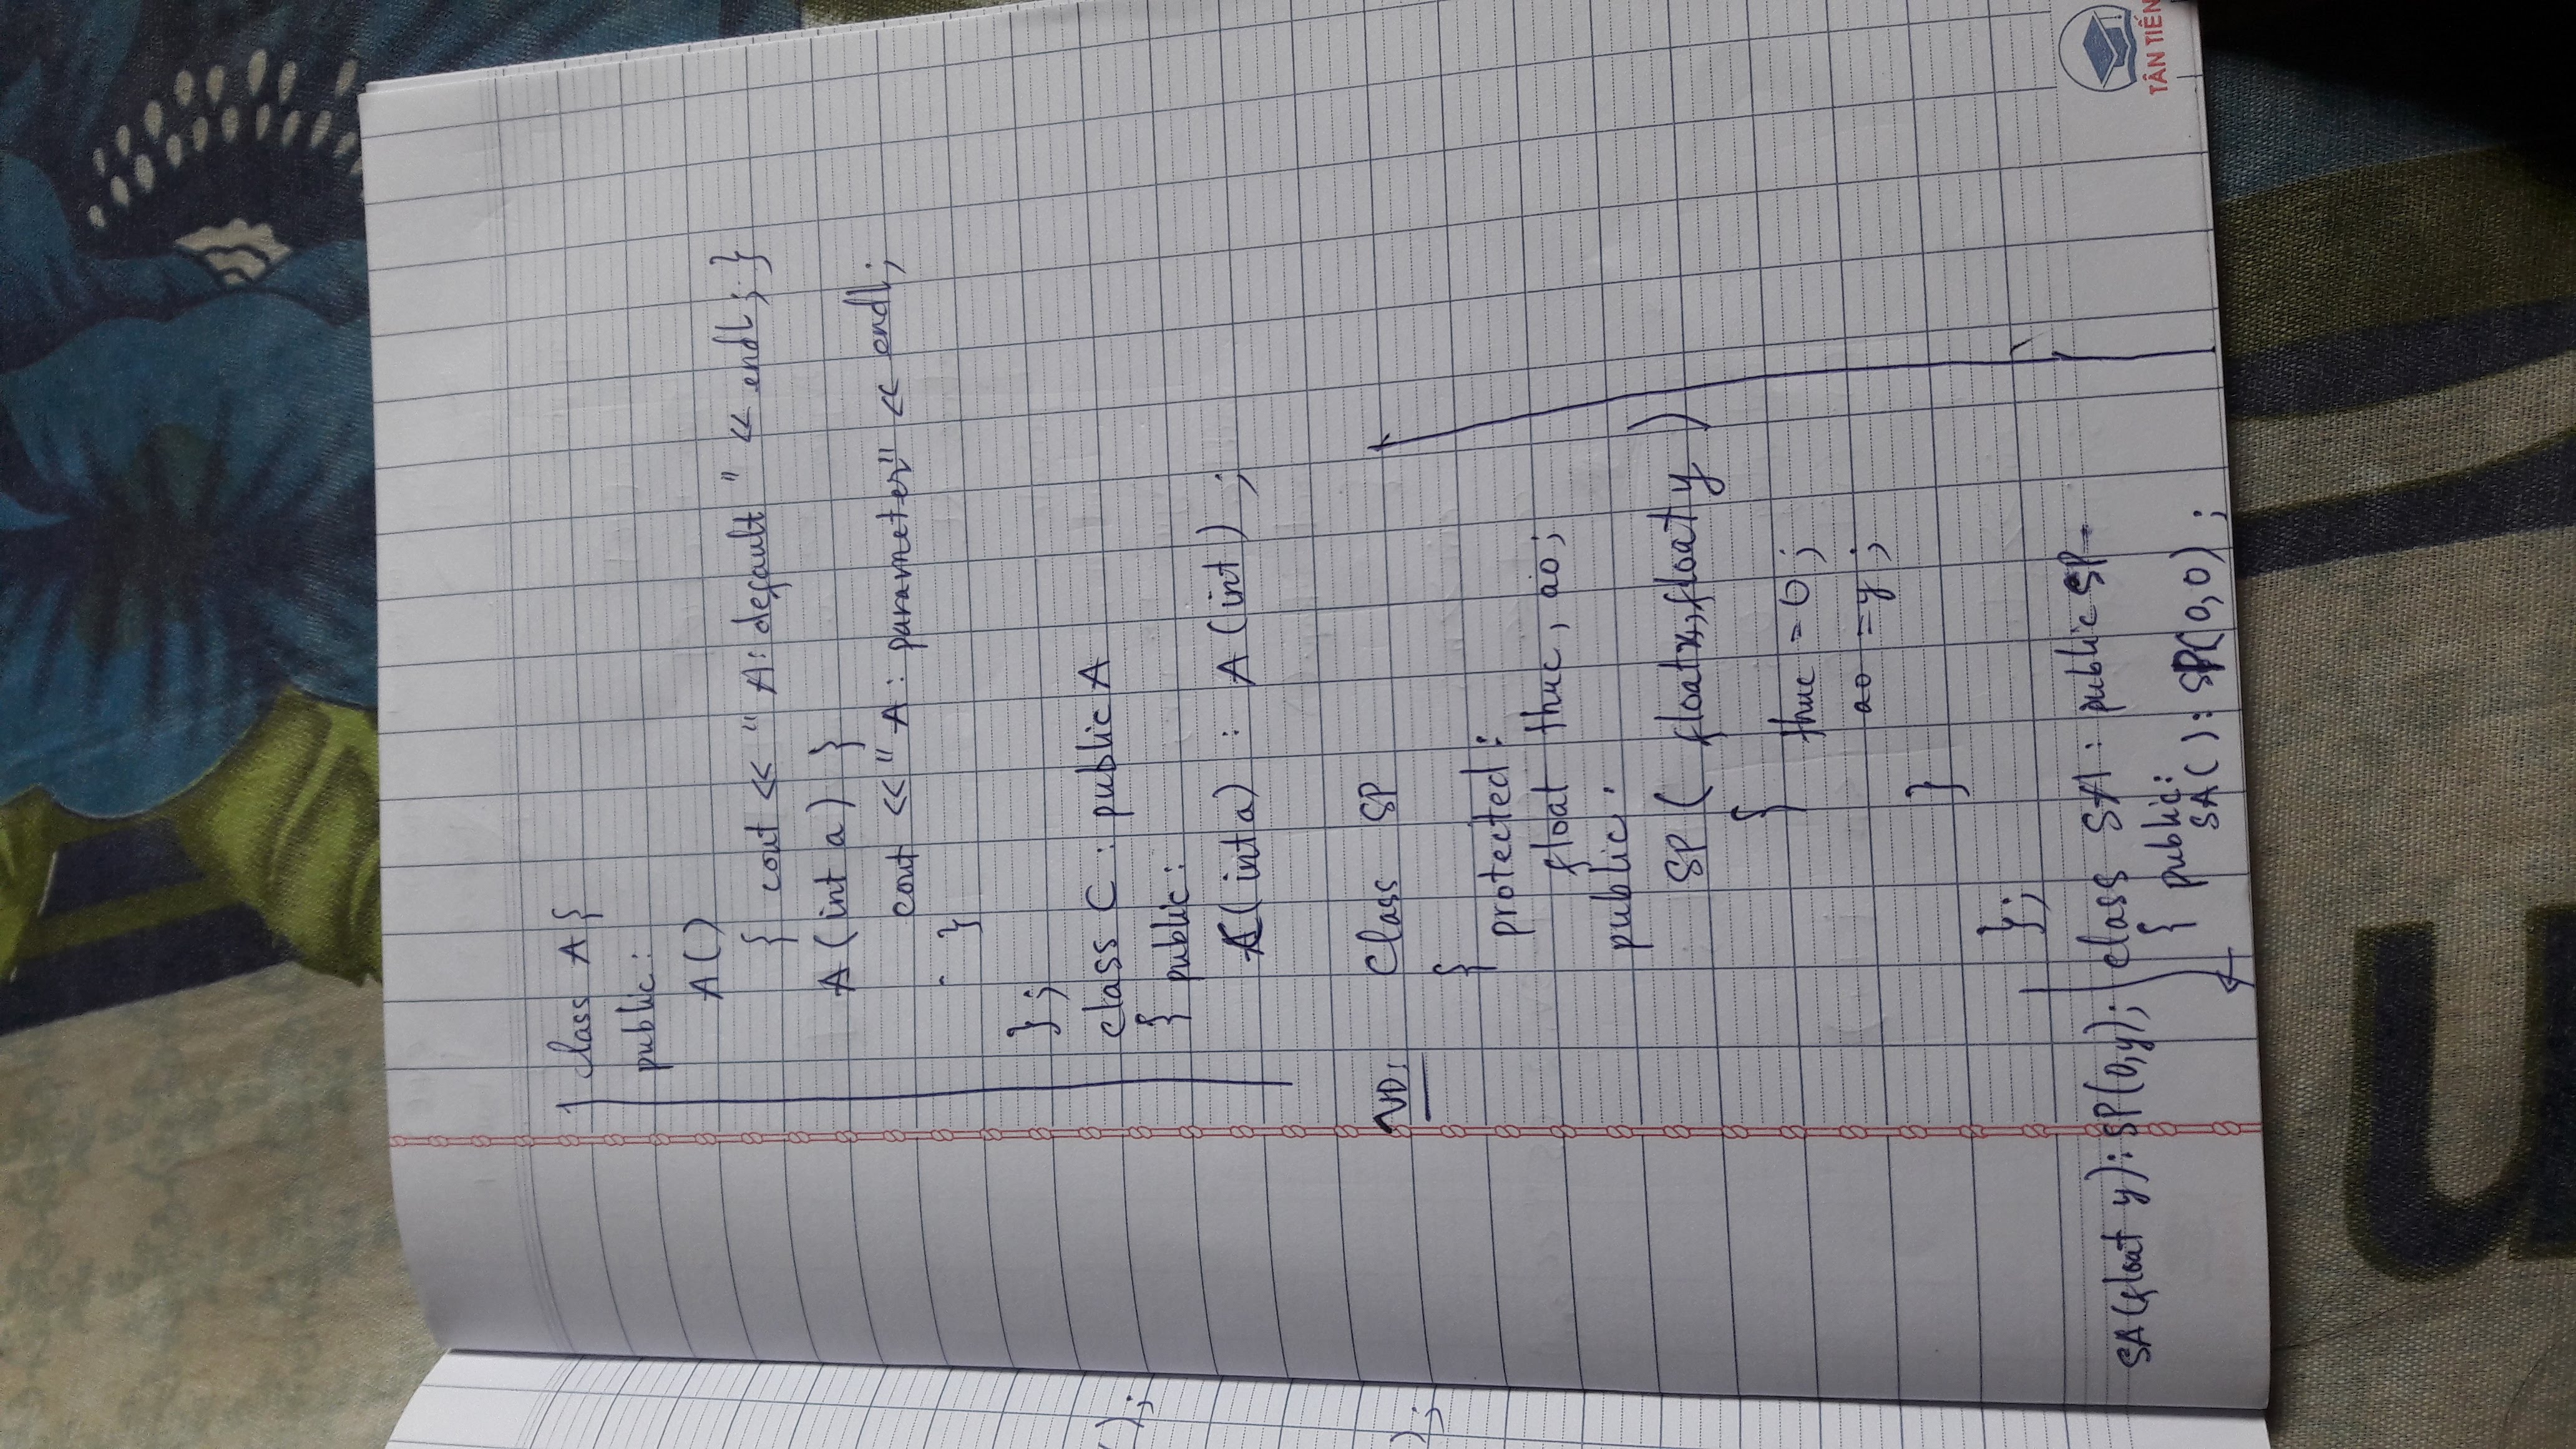 class A {
public:
A()
{ cout << " A: default " << endl ; }
A ( int a ) }
cout << " A : parameter" << endl;
}
};
class C : public A
{ public:
C( int a) : A (int) ;
VD:
Class SP
{
protected:
float thuc, ao;
public:
SP ( float x, float y )
{
thuc = 0 ;
ao = y ;
}
};
class SA : public SP
{ public:
SA() : SP(0,0) ;
SA(float y) : SP(0,y);
);
);
TÂN TIẾN